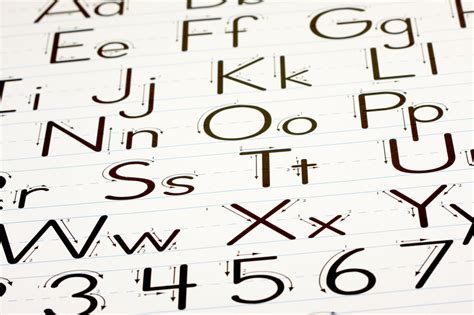 Aa
Ee Ff Gg
Ii Jj Kk Ll
Nn Oo Pp
r Ss Tt Uu
Ww Xx Yy
3 4 5 6 7